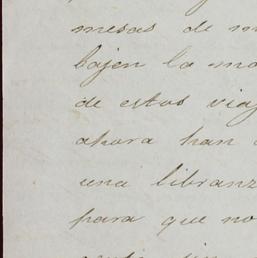 mesas de m
bajen la ma
de estos viaj
ahora han
una libranz
para que no